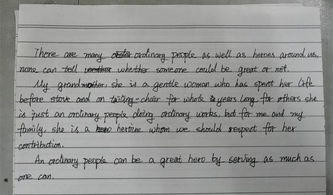 There are many ordinary people as well as heroes around us.
none can tell whether someone could be great or not.
My grandmother. she is a gentle woman who has spent her life
before stove and on -chair for whole years long. for others she
is just an ordinary people doing ordinary works, but for me and my
family, she is a heroine whom we should respect for her
contribution.
An ordinary people can be a great hero by serving as much as
one can.